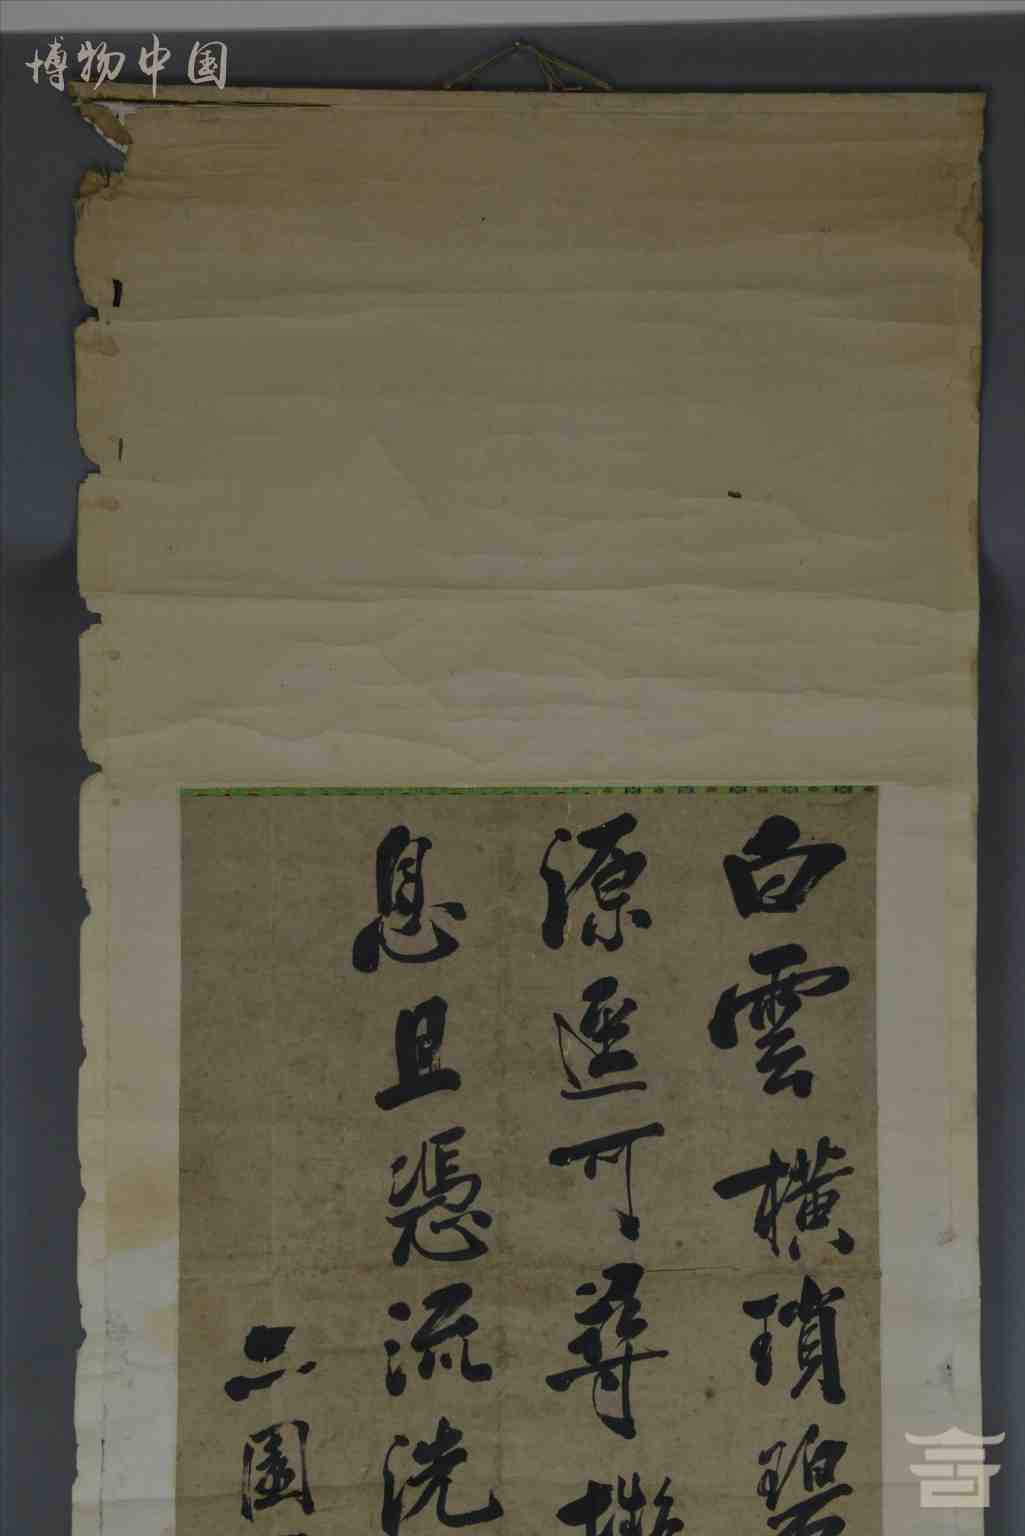 博物中国
白雲橫瑣碧
源逕可尋
息且憑流洗